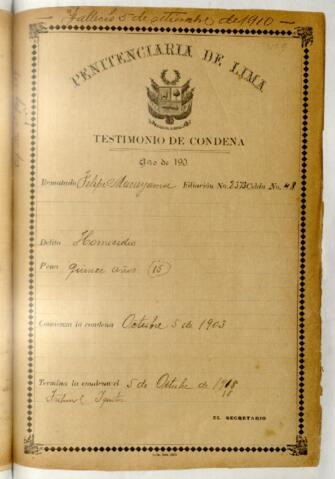 Falleció 5 de setiembre de 1910 —
PENITENCIARIA DE LIMA
TESTIMONIO DE CONDENA
Año de 190
Rematado Felipe Filiación No. 2573 Celda No. 48
Delito Homicidio
Pena quince años (15)
Comienza la condena Octubre 5 de 1903
Termina la condena el 5 de Octubre de 1918
18
Tribunal
EL SECRETARIO